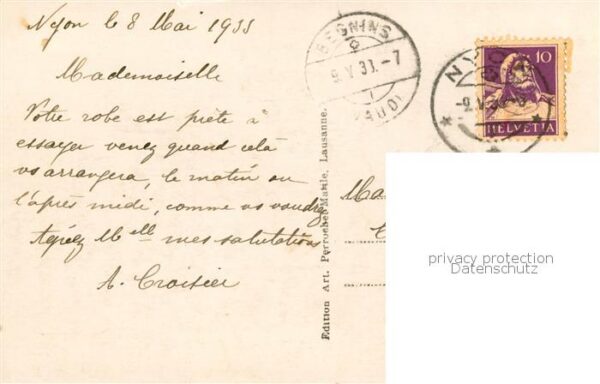 Nyon le 8 Mai 1933
Mademoiselle
Votre robe est prête à
essayer venez quand celà
vs arrangera, le matin ou
l'après midi, comme vs voudrez
Agréez Mlle mes salutations
A. Croisier
BEGNINS
9.V.33.-7
(VAUD)
Edition Art. Perrochet-Matile, Lausanne.
NYON
-9.V.33
10
HELVETIA
Ma
privacy protection
Datenschutz